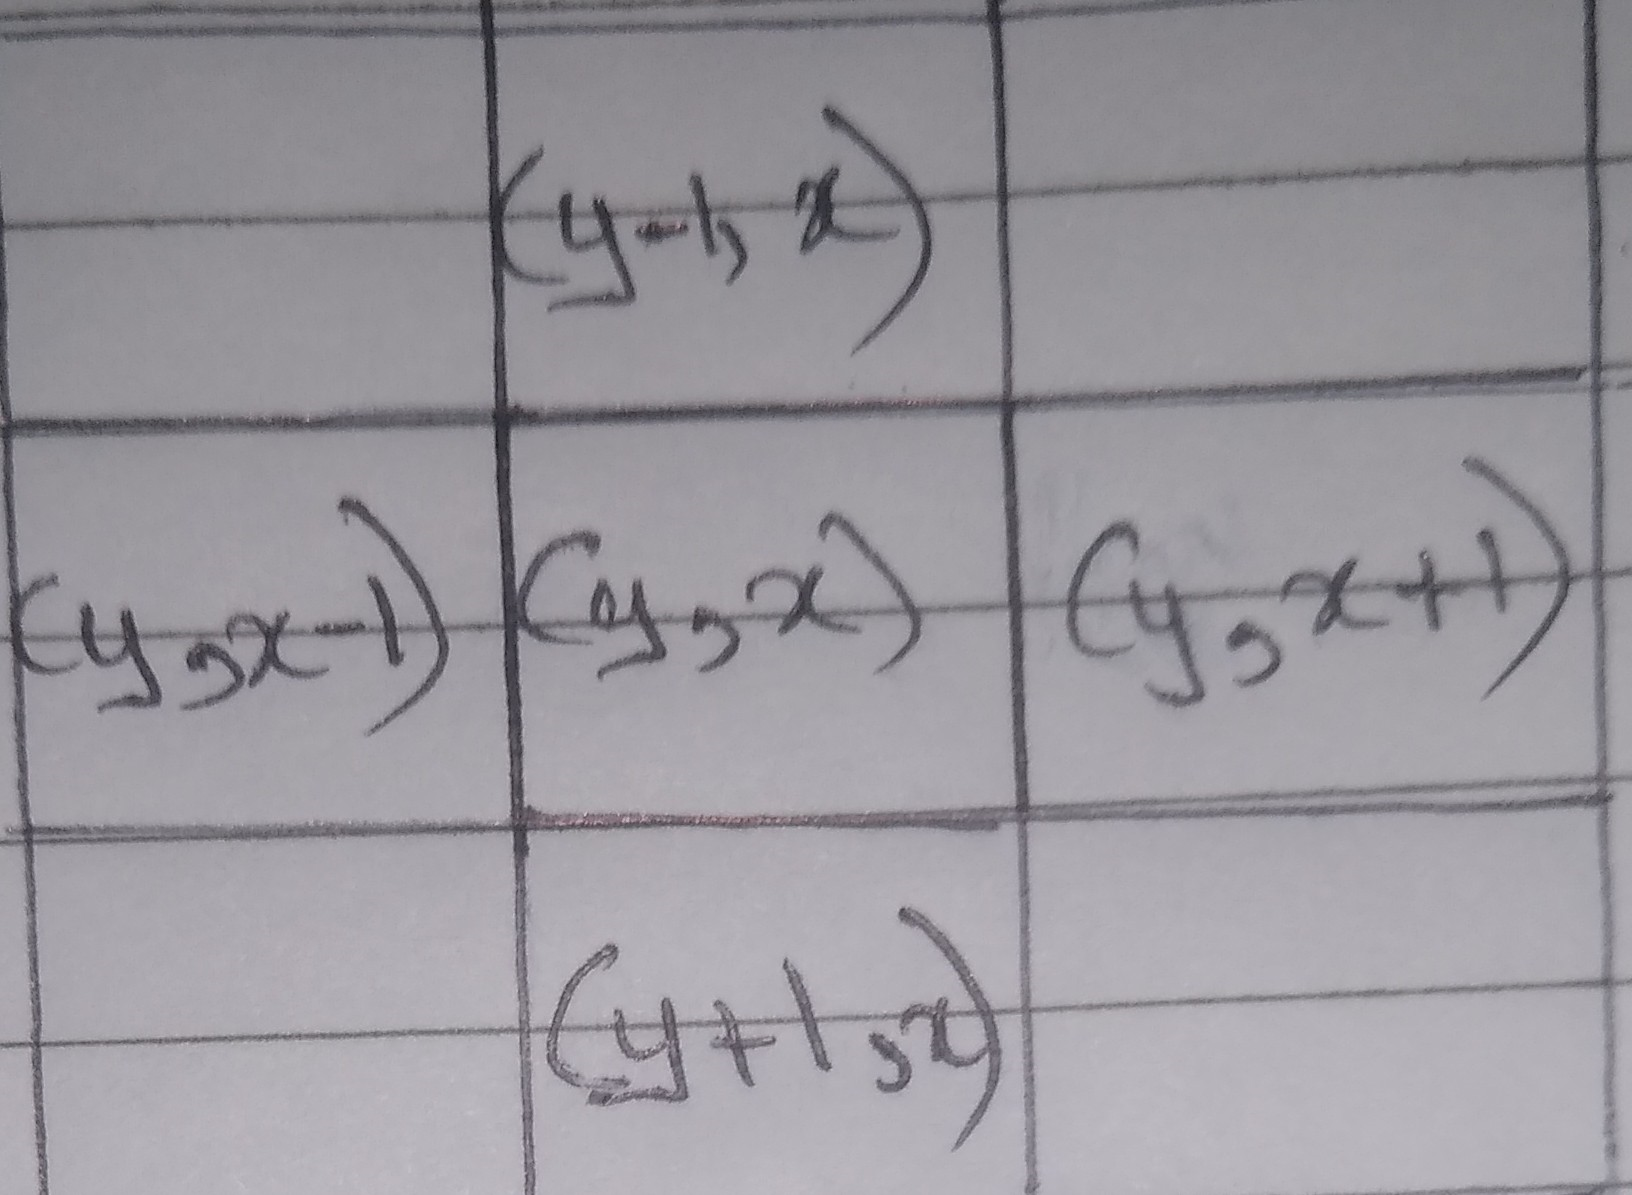 (y-1, x)
(y, x-1) (y, x) (y, x+1)
(y+1, x)